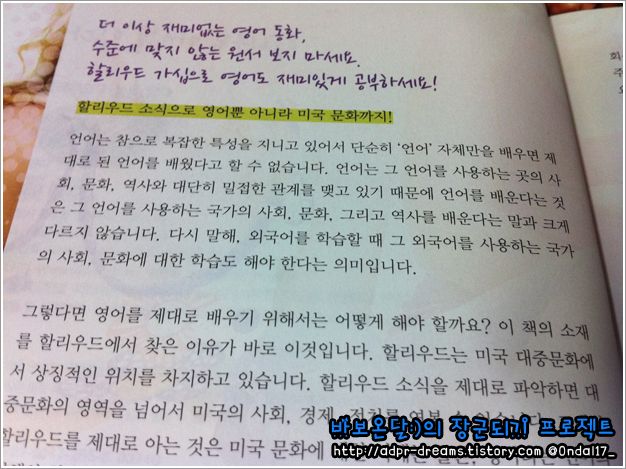 더 이상 재미없는 영어 동화,
수준에 맞지 않는 원서 보지 마세요.
할리우드 가십으로 영어도 재미있게 공부하세요!
할리우드 소식으로 영어뿐 아니라 미국 문화까지!
언어는 참으로 복잡한 특성을 지니고 있어서 단순히 ‘언어’ 자체만을 배우면 제
대로 된 언어를 배웠다고 할 수 없습니다. 언어는 그 언어를 사용하는 곳의 사
회, 문화, 역사와 대단히 밀접한 관계를 맺고 있기 때문에 언어를 배운다는 것
은 그 언어를 사용하는 국가의 사회, 문화, 그리고 역사를 배운다는 말과 크게
다르지 않습니다. 다시 말해, 외국어를 학습할 때 그 외국어를 사용하는 국가
의 사회, 문화에 대한 학습도 해야 한다는 의미입니다.
그렇다면 영어를 제대로 배우기 위해서는 어떻게 해야 할까요? 이 책의 소재
를 할리우드에서 찾은 이유가 바로 이것입니다. 할리우드는 미국 대중문화에
서 상징적인 위치를 차지하고 있습니다. 할리우드 소식을 제대로 파악하면 대
중문화의 영역을 넘어서 미국의 사회, 경제, 정치를
할리우드를 제대로 아는 것은 미국 문화에
바보온달:)의 장군되기 프로젝트
http://adpr-dreams.tistory.com @Ondal17_